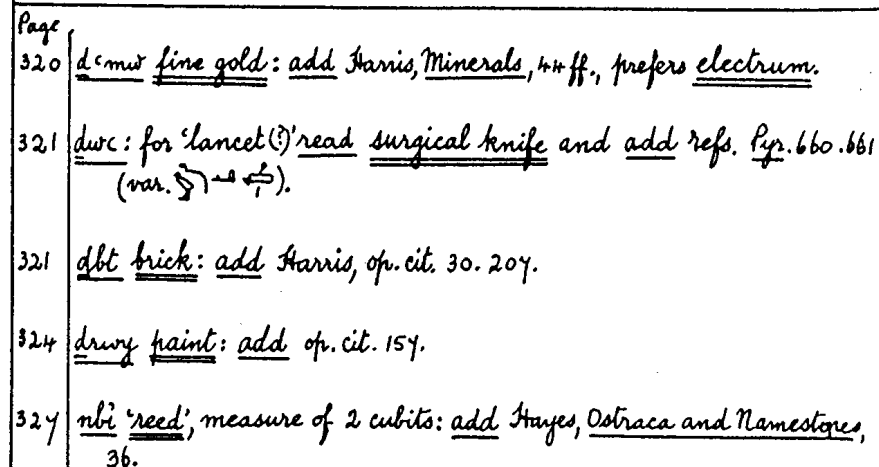 Page
320 ḏꜥmw fine gold: add Harris, Minerals, 44 ff., prefers electrum.
321 ḏwꜥ: for 'lancet(?)' read surgical knife and add refs. Pyr. 660. 661
(var. ).
321 ḏbt brick: add Harris, op. cit. 30. 207.
324 ḏrwy paint: add op. cit. 157.
327 nbỉ 'reed', measure of 2 cubits: add Hayes, Ostraca and Namestones,
36.